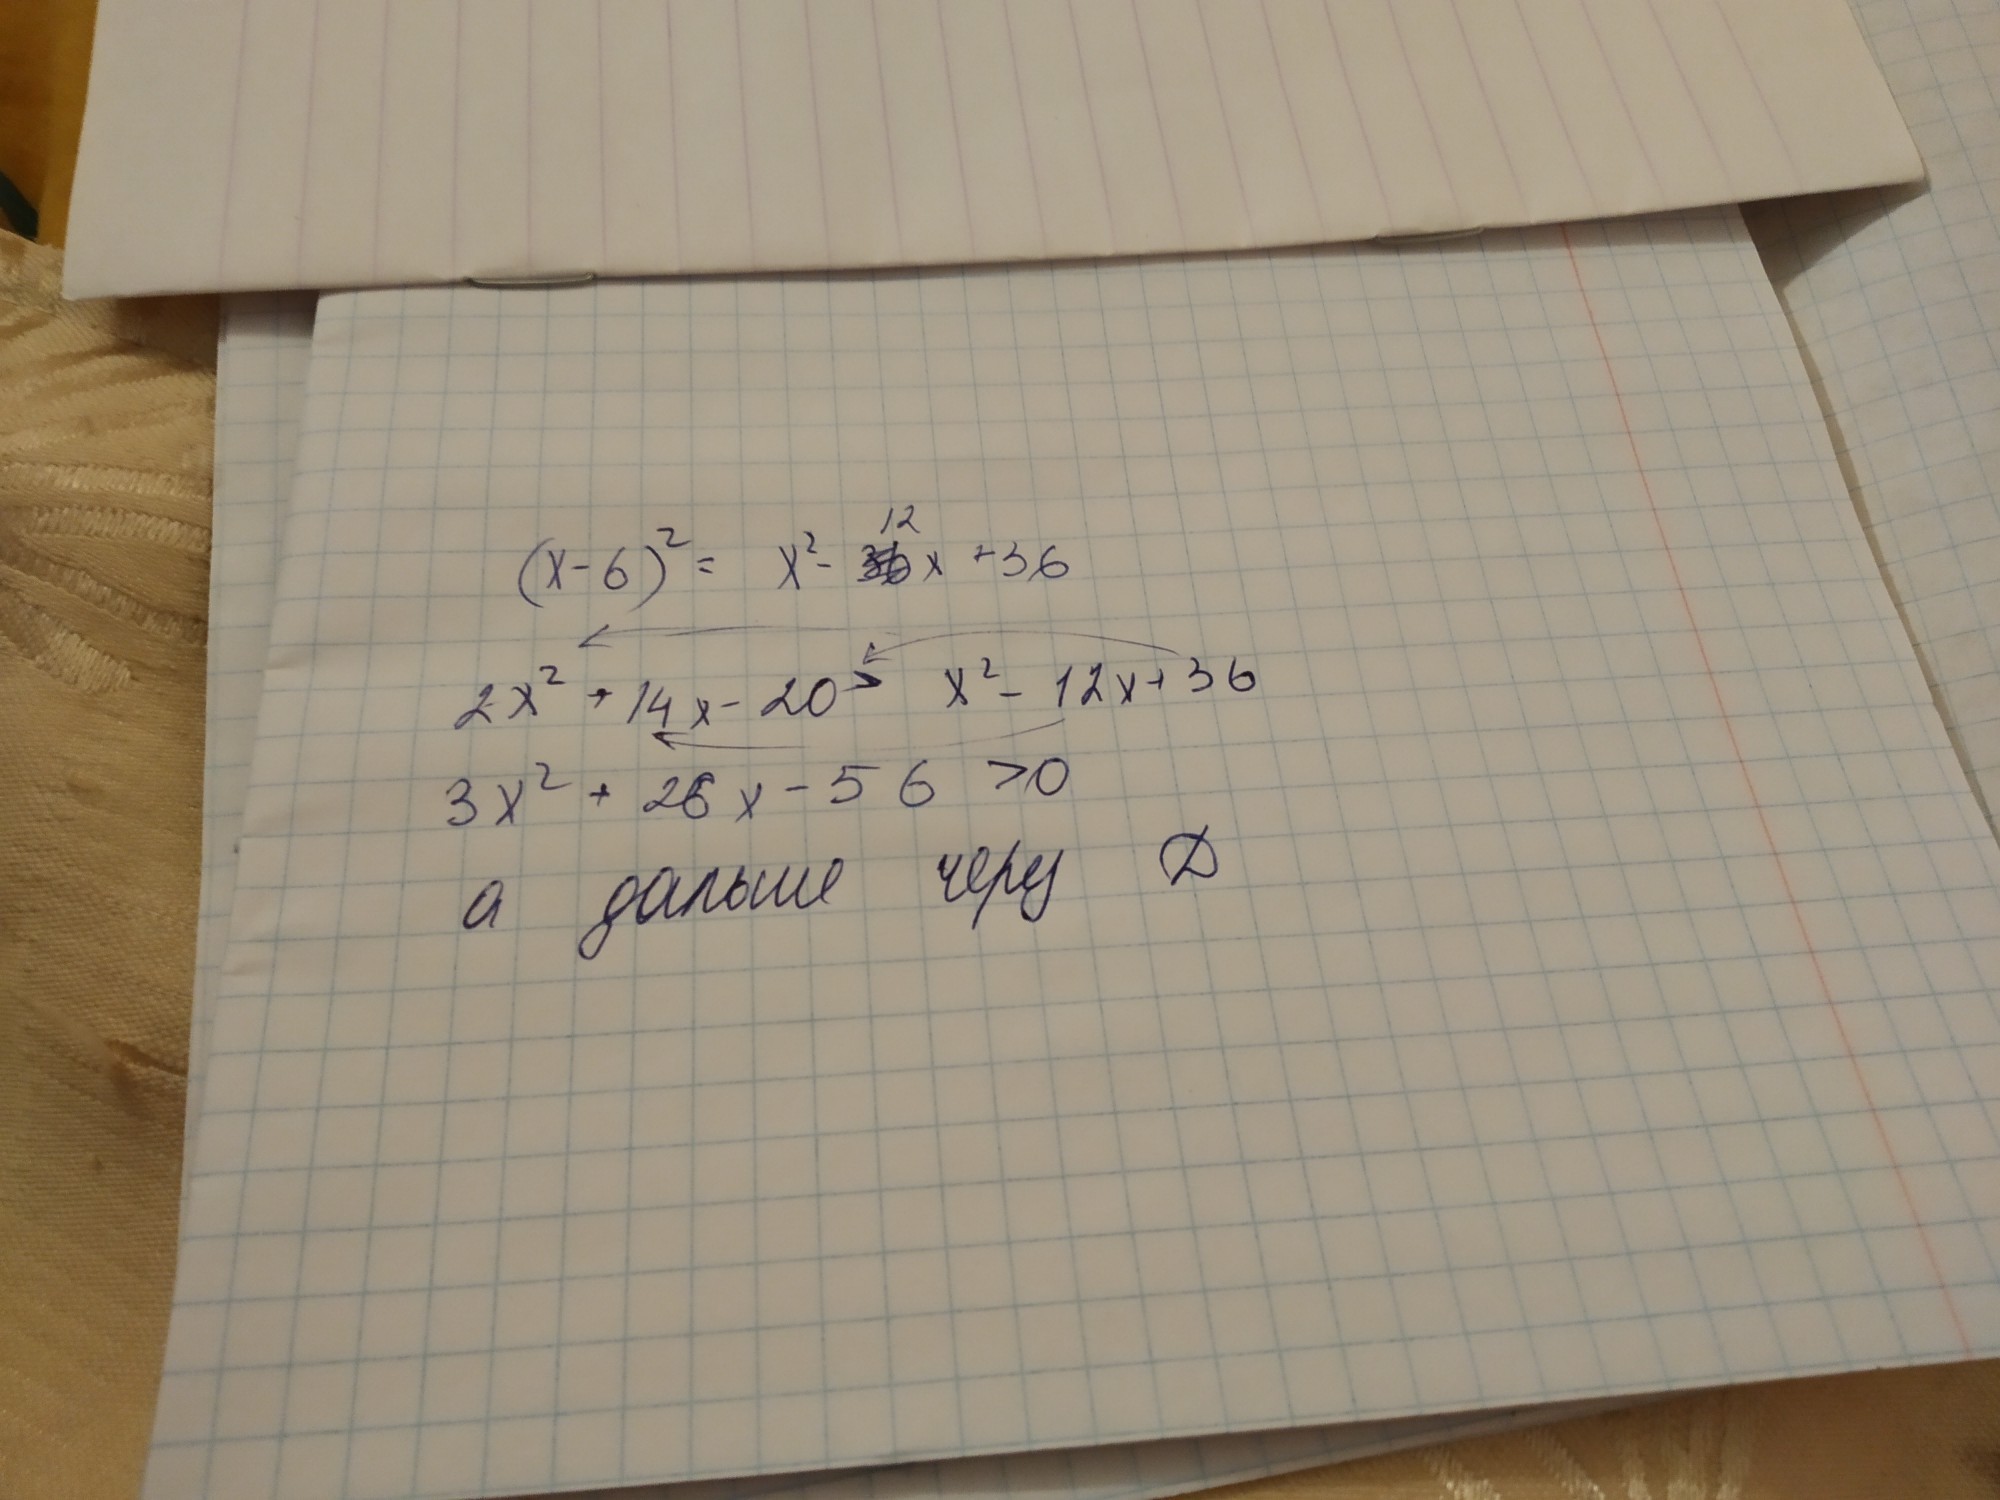 (x-6)² = x² - 12x + 36
2x² + 14x - 20 > x² - 12x + 36
3x² + 26x - 56 > 0
а дальше через D